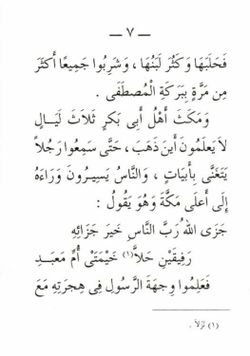 — ٧ —
فَحَلَبَهَا وَكَثُرَ لَبَنُهَا ، وَشَرِبُوا جَمِيعًا أَكْثَرَ
مِن مَرَّةٍ بِبَرَكَةِ الْمُصْطَفَى .
وَمَكَثَ أَهْلُ أَبِى بَكرٍ ثَلَاثَ لَيَالٍ
لَا يَعلَمُونَ أَينَ ذَهَبَ ، حَتَّى سَمِعُوا رَجُلاً
يَتَغَنَّى بِأَبيَاتٍ ، وَالنَّاسُ يَسِيرُونَ وَرَاءَهُ
إِلَى أَعلَى مَكَّةَ وَهُوَ يَقُولُ :
جَزَى اللهُ رَبُّ النَّاسِ خَيرَ جَزَائِهِ
رَفِيقَيْنِ حَلاَّ (١) خَيْمَتَى أُمِّ مَعبَدِ
فَعَلِمُوا وِجهَةَ الرَّسُولِ فِى هِجرَتِهِ مَعَ
(١) نَزَلاَ .